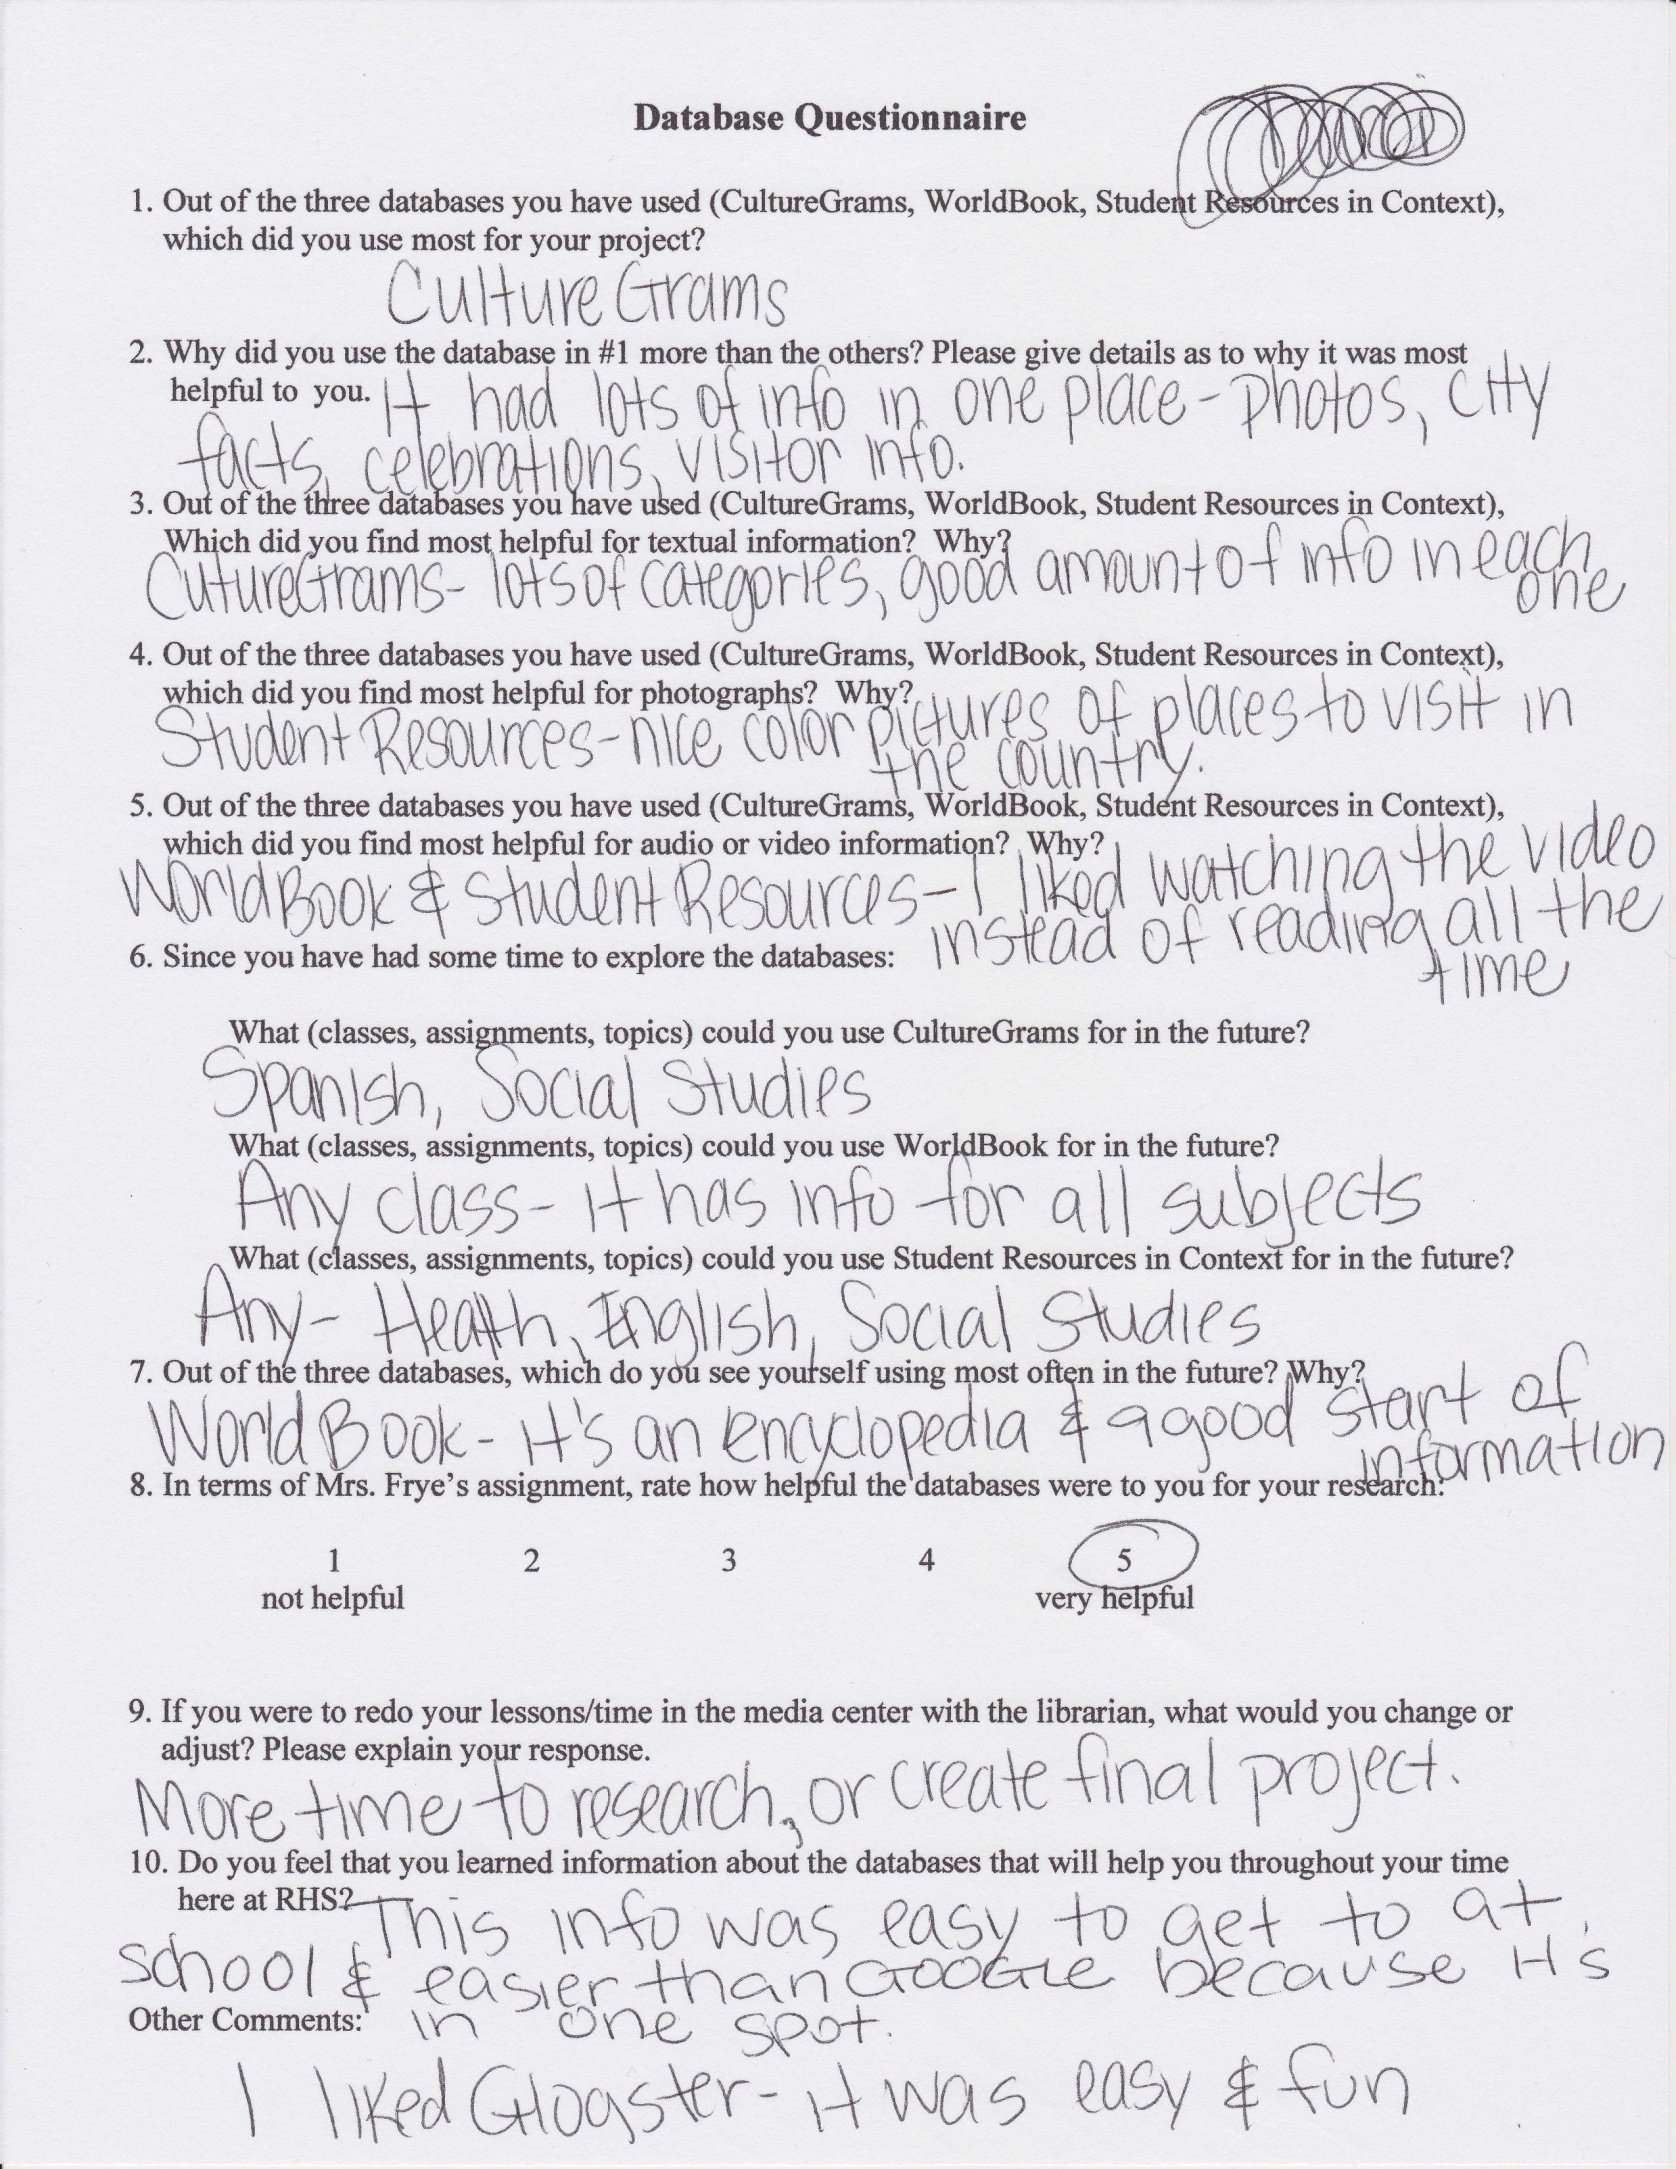 Database Questionnaire
1. Out of the three databases you have used (CultureGrams, WorldBook, Student Resources in Context),
which did you use most for your project?
CultureGrams
2. Why did you use the database in #1 more than the others? Please give details as to why it was most
helpful to you. It had lots of info in one place - photos, city
facts, celebrations, visitor info.
3. Out of the three databases you have used (CultureGrams, WorldBook, Student Resources in Context),
Which did you find most helpful for textual information? Why?
CutureGrams - lots of categories, good amount of info in each
one
4. Out of the three databases you have used (CultureGrams, WorldBook, Student Resources in Context),
which did you find most helpful for photographs? Why?
Student Resources - nice color pictures of places to visit in
the country.
5. Out of the three databases you have used (CultureGrams, WorldBook, Student Resources in Context),
which did you find most helpful for audio or video information? Why?
WorldBook & Student Resources - I liked watching the video
instead of reading all the
time
6. Since you have had some time to explore the databases:
What (classes, assignments, topics) could you use CultureGrams for in the future?
Spanish, Social Studies
What (classes, assignments, topics) could you use WorldBook for in the future?
Any class - it has info for all subjects
What (classes, assignments, topics) could you use Student Resources in Context for in the future?
Any - Health, English, Social Studies
7. Out of the three databases, which do you see yourself using most often in the future? Why?
World Book - it's an encyclopedia & a good start of
information
8. In terms of Mrs. Frye's assignment, rate how helpful the databases were to you for your research:
1 2 3 4 5
not helpful very helpful
9. If you were to redo your lessons/time in the media center with the librarian, what would you change or
adjust? Please explain your response.
More time to research, or create final project.
10. Do you feel that you learned information about the databases that will help you throughout your time
here at RHS? This info was easy to get to at
school & easier than GOOGLE because it's
in one spot.
Other Comments:
I liked Glogster - it was easy & fun